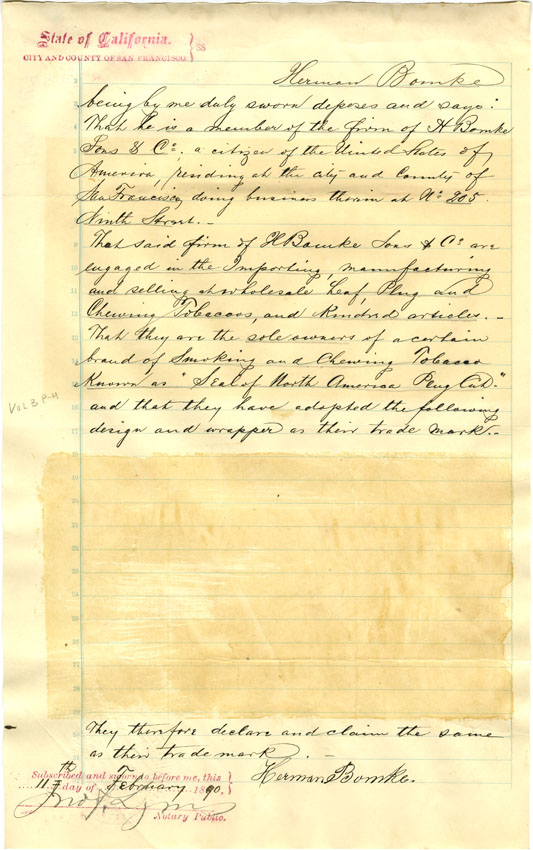 State of California.
CITY AND COUNTY OF SAN FRANCISCO } SS
Herman Bomke
being by me duly sworn deposes and says:
That he is a member of the firm of H Bomke
Sons & Co. a citizen of the United States of
America, residing at the city and County of
San Francisco, doing business therein at No. 205
Ninth Street. –
That said firm of H Bomke Sons & Co. are
engaged in the Importing, manufacturing
and selling at wholesale Leaf, Plug and
Chewing Tobaccos, and Kindred articles. –
That they are the sole owners of a certain
brand of Smoking and Chewing Tobacco
Known as "Seal of North America Plug Cut"
and that they have adopted the following
design and wrapper as their trade mark. –
Vol 3 P-4
They therefore declare and claim the same
as their trade mark. –
Subscribed and sworn to before me, this
day of February 1890.
Herman Bomke.
Notary Public.